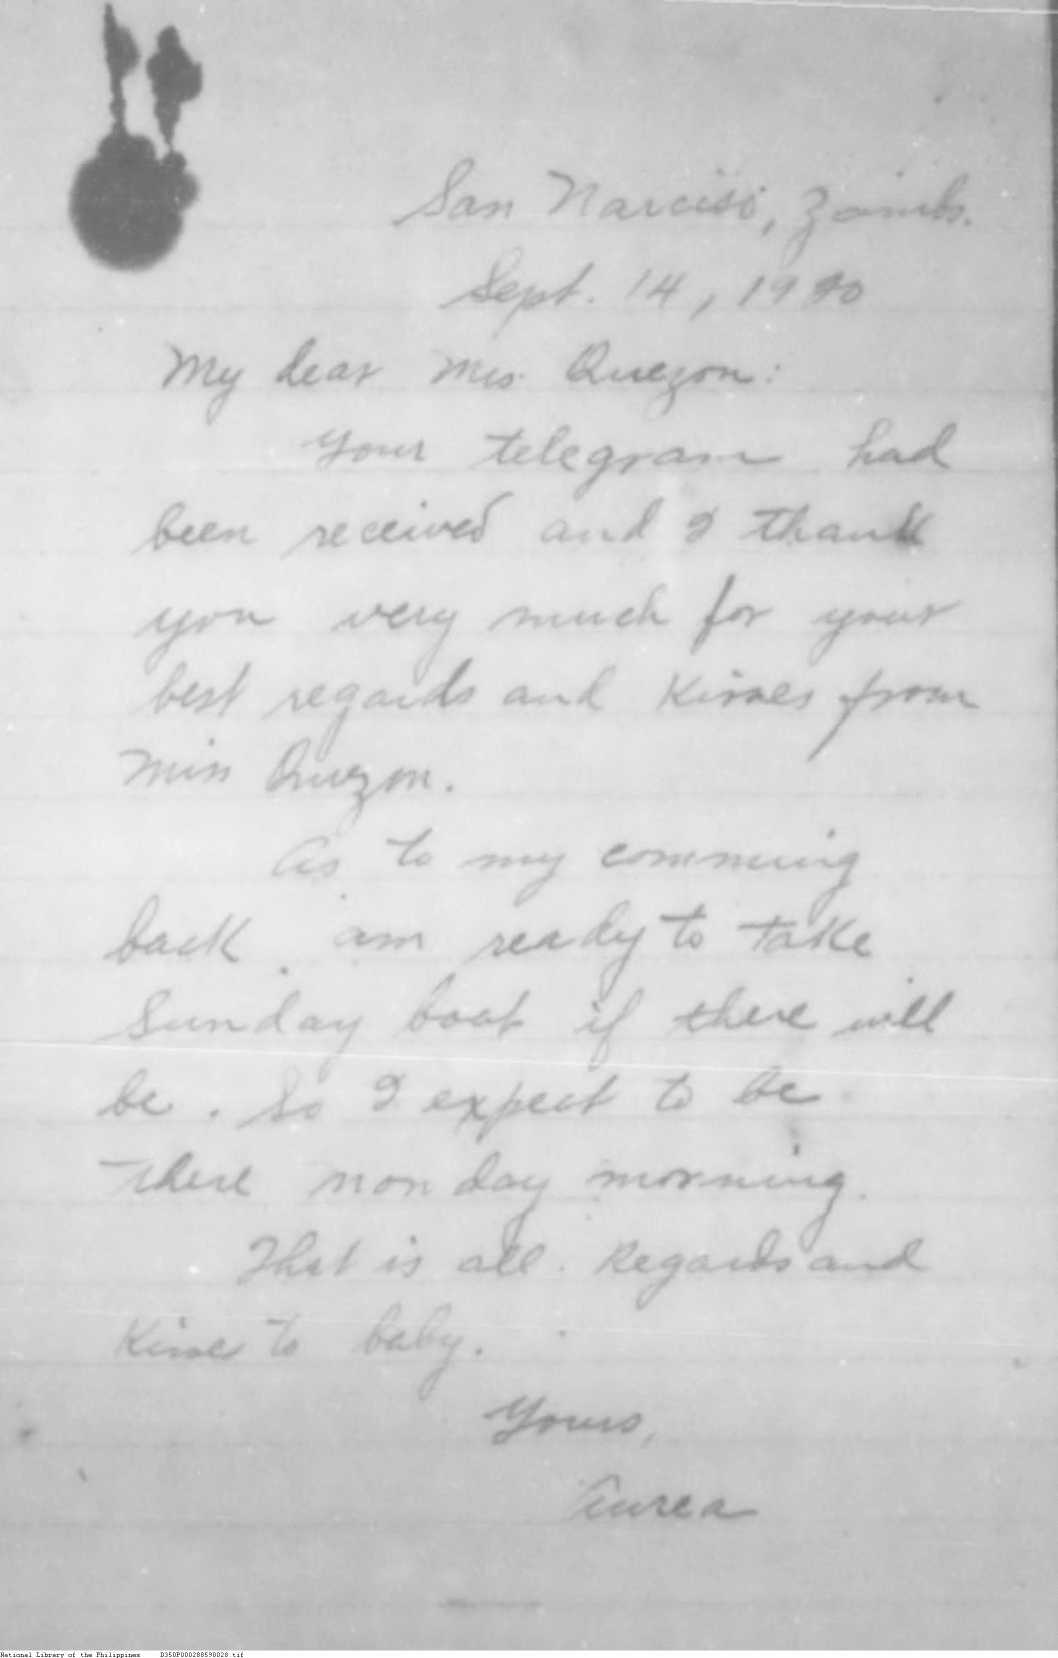 San Narciso, Zambs.
Sept. 14, 1920
My dear Mrs. Quezon:
Your telegram had
been received and I thank
you very much for your
best regards and Kisses from
Miss Quezon.
As to my comming
back. am ready to take
Sunday boat if there will
be. So I expect to be
there monday morning.
That is all. Regards and
Kisses to baby.
Yours,
Aurea
National Library of the Philippines D350P000288598028.tif